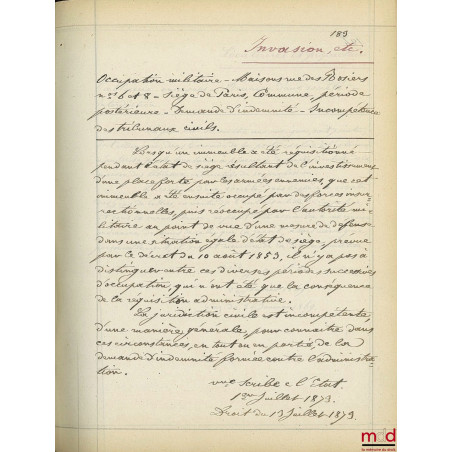 183
Invasion, etc.
Occupation militaire – Maisons rue des Rosiers
nos 6 et 8 – Siège de Paris, Commune, période
postérieure – Demande d'indemnité – Incompétence
des tribunaux civils.
Lorsqu'un immeuble a été réquisitionné
pendant l'état de siège résultant de l'investissement
d'une place forte par les armées ennemies, que cet
immeuble a été ensuite occupé par des forces insur-
rectionnelles, puis réoccupé par l'autorité mi-
litaire au point de vue d'une mesure de défense
dans une situation égale d'état de siège, prévue
par le décret du 10 août 1853, il n'y a pas à
distinguer entre ces diverses périodes successives
d'occupation, qui n'ont été que la conséquence
de la réquisition administrative.
La juridiction civile est incompétente,
d'une manière générale, pour connaître dans
ces circonstances, en tout ou en partie, de la
demande d'indemnité formée contre l'administra-
tion.
Scribe c. l'Etat.
1er Juillet 1873.
Droit du 13 Juillet 1873.
mdd
la mémoire du droit